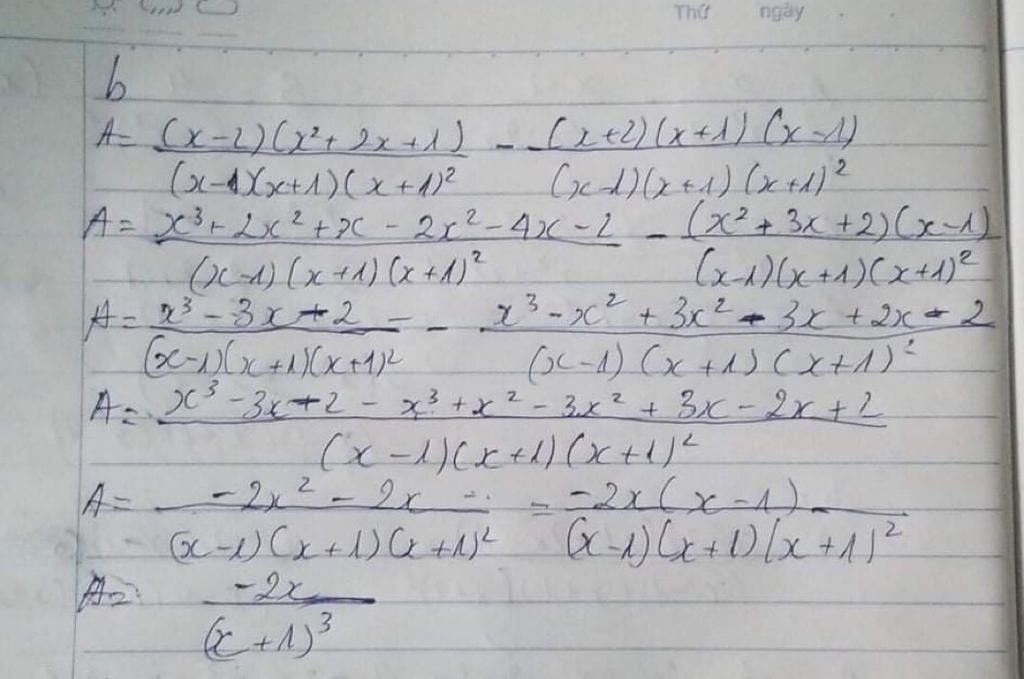 Thứ ngày
b
A = \frac{(x-2)(x^2+2x+1)}{(x-1)(x+1)(x+1)^2} - \frac{(x+2)(x+1)(x-1)}{(x-1)(x+1)(x+1)^2}
A = \frac{x^3+2x^2+x-2x^2-4x-2}{(x-1)(x+1)(x+1)^2} - \frac{(x^2+3x+2)(x-1)}{(x-1)(x+1)(x+1)^2}
A = \frac{x^3-3x-2}{(x-1)(x+1)(x+1)^2} - \frac{x^3-x^2+3x^2-3x+2x-2}{(x-1)(x+1)(x+1)^2}
A = \frac{x^3-3x-2-x^3+x^2-3x^2+3x-2x+2}{(x-1)(x+1)(x+1)^2}
A = \frac{-2x^2-2x}{(x-1)(x+1)(x+1)^2} = \frac{-2x(x-1)}{(x-1)(x+1)(x+1)^2}
A = \frac{-2x}{(x+1)^3}